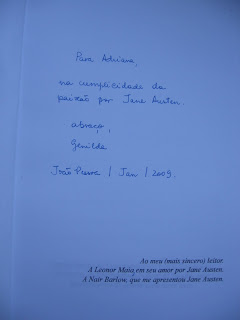 Para Adriana,
na cumplicidade da
paixão por Jane Austen.
abraço,
Genilda
João Pessoa / Jan / 2009.
Ao meu (mais sincero) leitor.
A Leonor Maia em seu amor por Jane Austen.
A Nair Barlow, que me apresentou Jane Austen.